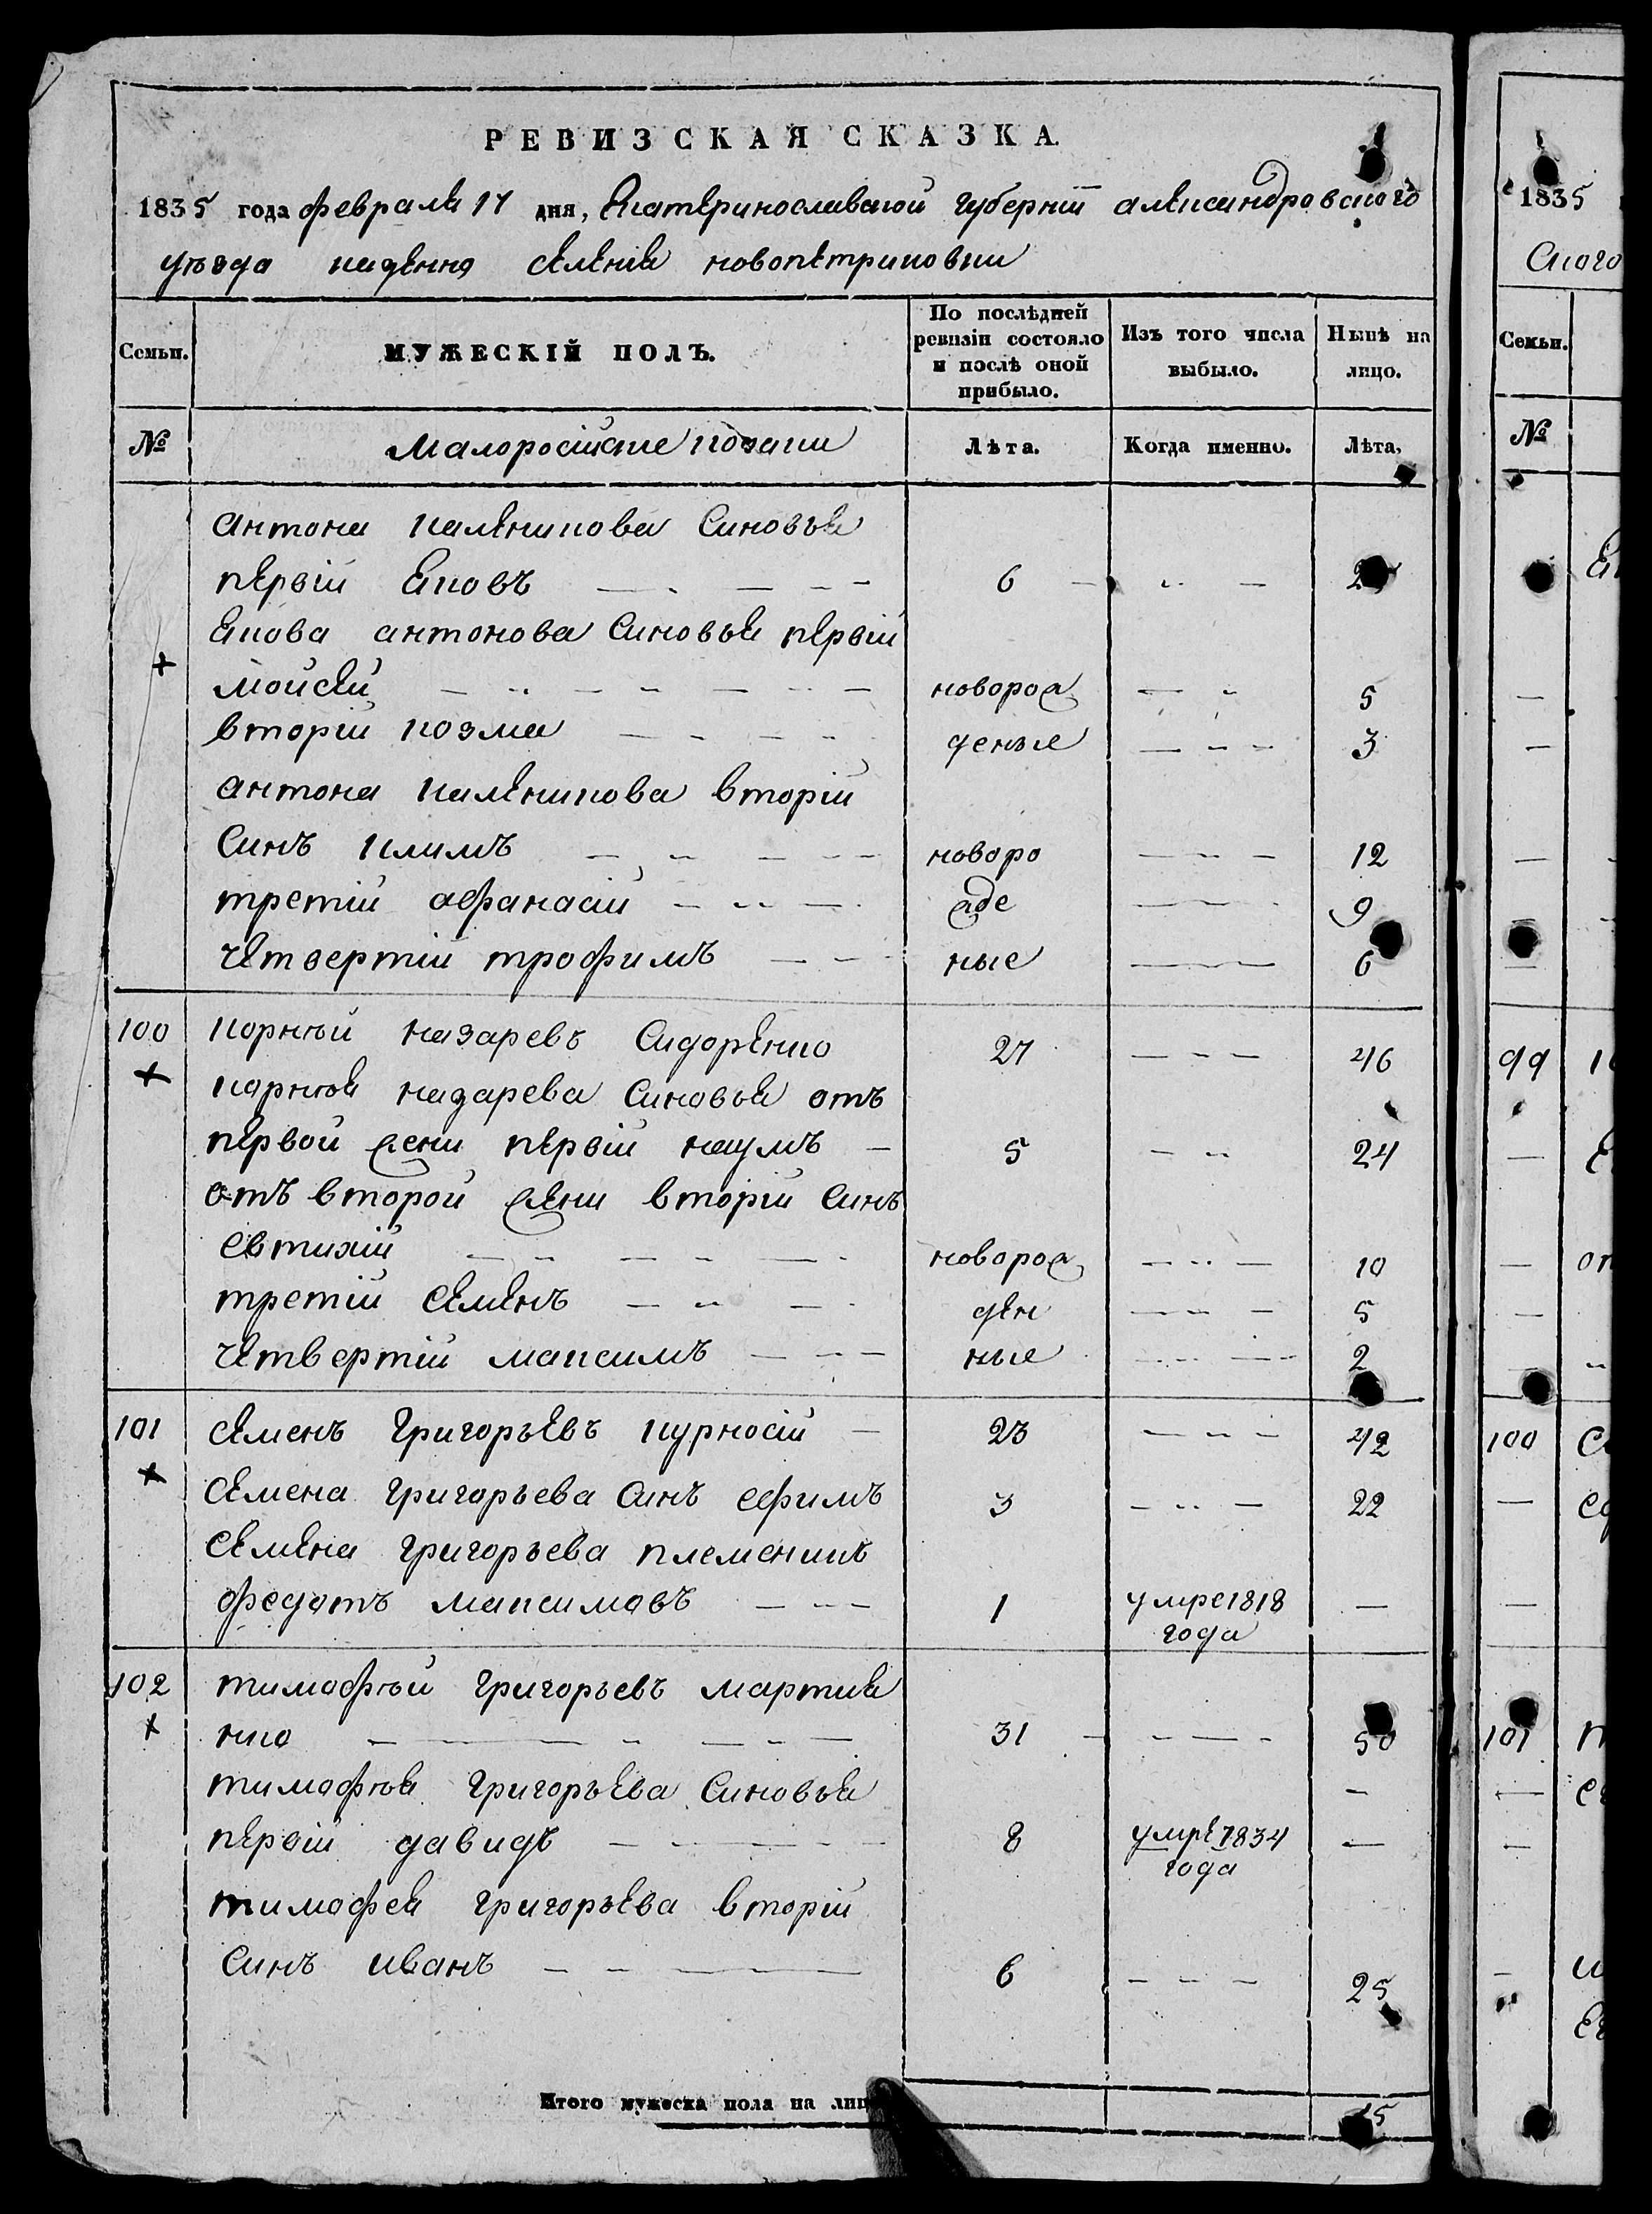 РЕВИЗСКАЯ СКАЗКА.
1835 года февраля 17 дня, Екатеринославской губерніи александровского
уѣзда казенно селенія новопетриковки
Семьи. МУЖЕСКІЙ ПОЛЪ. По послѣдней ревизіи состояло и послѣ оной прибыло. Изъ того числа выбыло. Нынѣ на лицо.
№ Малоросійские козаки Лѣта. Когда именно. Лѣта.
антона каленикова синовья
первій яковъ 6
якова антонова синовья первій
мойсей новорож 5
вторій козма деные 3
антона каленикова вторій
синъ климъ новоро 12
третій афанасій жде 9
четвертій трофимъ ные 6
100 корнѣй назаревъ сидоренко 27 46
корнѣя назарева синовья отъ
первой жени первій наумъ 5 24
отъ второй жени вторій синъ
евтихій новорож 10
третій семенъ ден 5
четвертій максимъ ные 2
101 семенъ григорьевъ курносій 23 42
семена григорьева синъ ефимъ 3 22
семена григорьева племеникъ
федотъ максимовъ 1 умре 1818
года
102 тимофѣй григорьевъ мартие
нко 31 50
тимофѣя григорьева синовья
первій давидъ 8 умре 1834
года
тимофея григорьева вторій
синъ иванъ 6 25
Итого мужеска пола на лиц 15
1835
ского
Семьи.
№
99
100
101